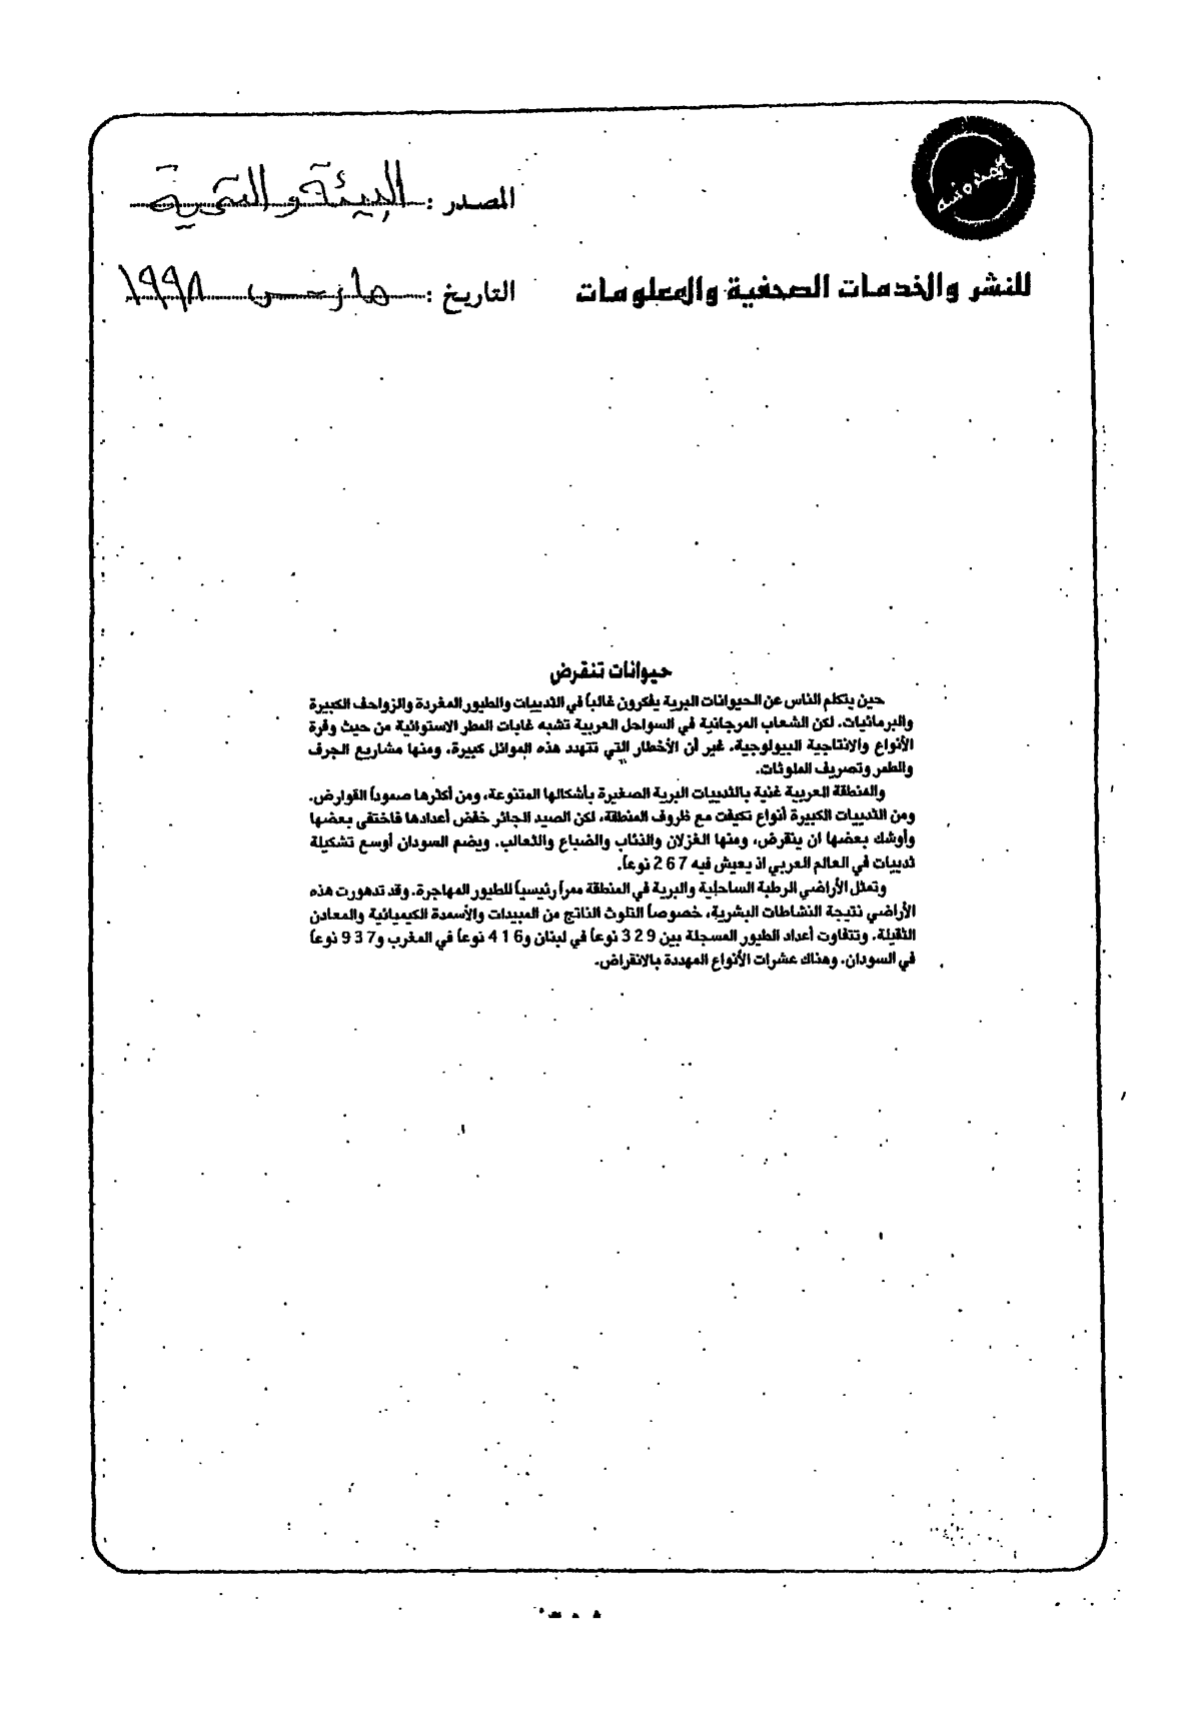 المصدر : البيئة والتنمية
للنشر والخدمات الصحفية والمعلومات التاريخ : مارس ١٩٩٨
حيوانات تنقرض
حين يتكلم الناس عن الحيوانات البرية يفكرون غالباً في الثدييات والطيور المغردة والزواحف الكبيرة
والبرمائيات. لكن الشعاب المرجانية في السواحل العربية تشبه غابات المطر الاستوائية من حيث وفرة
الأنواع والانتاجية البيولوجية. غير أن الأخطار التي تتهدد هذه الموائل كبيرة، ومنها مشاريع الجرف
والطمر وتصريف الملوثات.
والمنطقة العربية غنية بالثدييات البرية الصغيرة بأشكالها المتنوعة، ومن أكثرها صموداً القوارض.
ومن الثدييات الكبيرة أنواع تكيفت مع ظروف المنطقة، لكن الصيد الجائر خفض أعدادها فاختفى بعضها
وأوشك بعضها ان ينقرض، ومنها الغزلان والذئاب والضباع والثعالب. ويضم السودان أوسع تشكيلة
ثدييات في العالم العربي اذ يعيش فيه 267 نوعاً.
وتمثل الأراضي الرطبة الساحلية والبرية في المنطقة ممراً رئيسياً للطيور المهاجرة. وقد تدهورت هذه
الأراضي نتيجة النشاطات البشرية، خصوصاً التلوث الناتج من المبيدات والأسمدة الكيميائية والمعادن
الثقيلة. وتتفاوت أعداد الطيور المسجلة بين 329 نوعاً في لبنان و416 نوعاً في المغرب و937 نوعاً
في السودان. وهناك عشرات الأنواع المهددة بالانقراض.